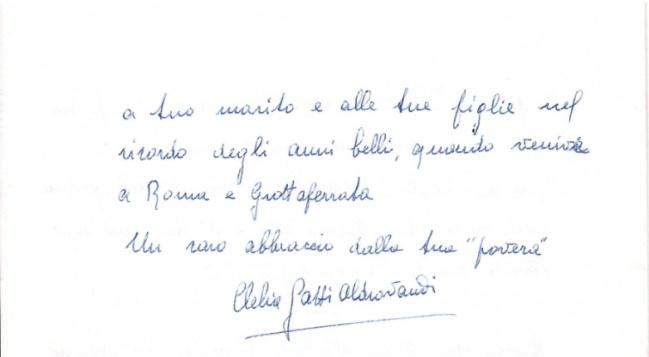 a tuo marito e alle tue figlie nel
ricordo degli anni belli, quando venivi
a Roma e Grottaferrata
Un caro abbraccio dalla tua "povera"
Clelia Gatti Aldrovandi